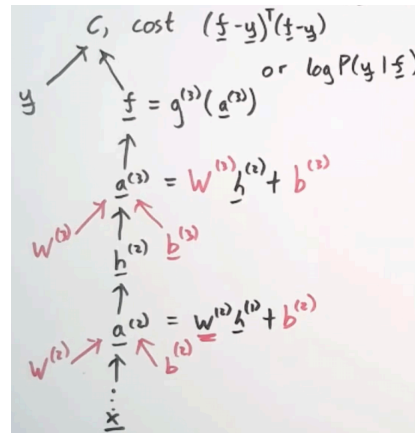 C, cost (f-y)ᵀ(f-y)
or log P(y|f)
y f = g⁽³⁾(a⁽³⁾)
a⁽³⁾ = W⁽³⁾h⁽²⁾ + b⁽³⁾
W⁽³⁾ b⁽³⁾
h⁽²⁾
a⁽²⁾ = W⁽²⁾h⁽¹⁾ + b⁽²⁾
W⁽²⁾ b⁽²⁾
⋮
x